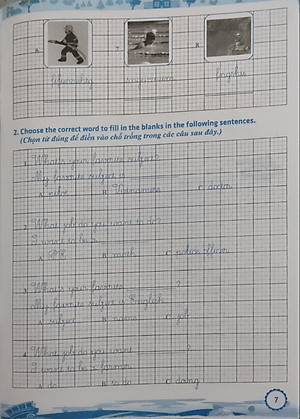 6.
7.
8.
2. Choose the correct word to fill in the blanks in the following sentences.
(Chọn từ đúng để điền vào chỗ trống trong các câu sau đây.)
1. What's your favorite subject?
My favorite subject is
A. pilot B. Vietnamese C. doctor
2. What job do you want to do?
I want to be a
A. P.E. B. math C. police officer
3. What's your favorite ?
My favorite subject is English.
A. subject B. name C. job
4. What job do you want ?
I want to be a farmer.
A. do B. to do C. doing
7